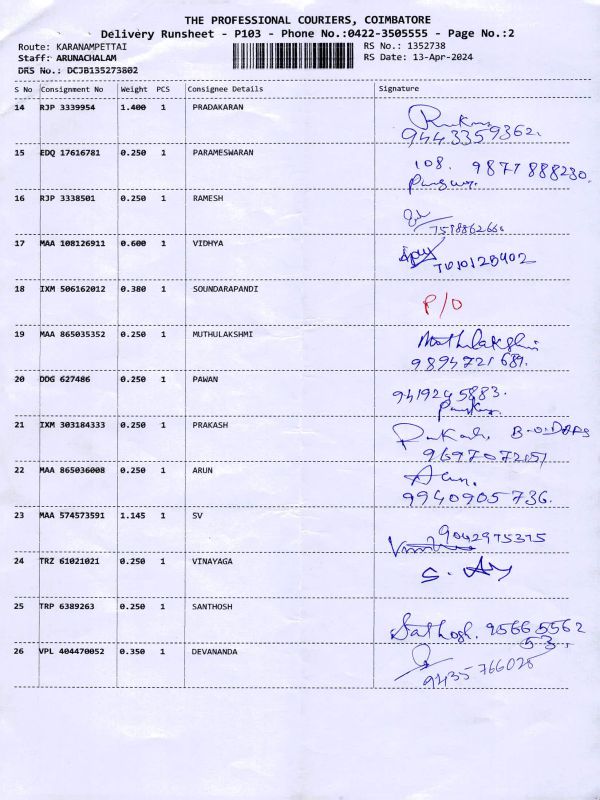 THE PROFESSIONAL COURIERS, COIMBATORE
Delivery Runsheet - P103 - Phone No.:0422-3505555 - Page No.:2
Route: KARANAMPETTAI RS No.: 1352738
Staff: ARUNACHALAM RS Date: 13-Apr-2024
DRS No.: DCJB135273802
S No Consignment No Weight PCS Consignee Details Signature
14 RJP 3339954 1.400 1 PRADAKARAN
9443359362.
15 EDQ 17616781 0.250 1 PARAMESWARAN
108. 9877888230.
16 RJP 3338501 0.250 1 RAMESH
17 MAA 108126911 0.600 1 VIDHYA
18 IXM 506162012 0.380 1 SOUNDARAPANDI
P/O
19 MAA 865035352 0.250 1 MUTHULAKSHMI
9894721689.
20 DDG 627486 0.250 1 PAWAN
9419245883.
21 IXM 303184333 0.250 1 PRAKASH
9697072151
22 MAA 865036008 0.250 1 ARUN
Arun.
9940905736.
23 MAA 574573591 1.145 1 SV
9042975375
24 TRZ 61021021 0.250 1 VINAYAGA
25 TRP 6389263 0.250 1 SANTHOSH
Sathosh. 95665562
53.
26 VPL 404470052 0.350 1 DEVANANDA
9435766028